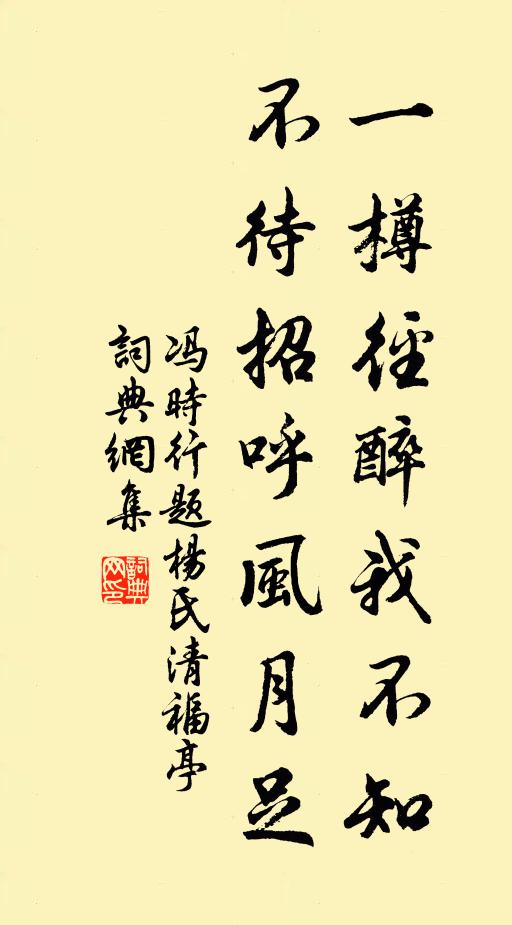 一樽径醉我不知
不待招呼風月足
冯時行题楊氏清福亭
詞典網集
詞典网印